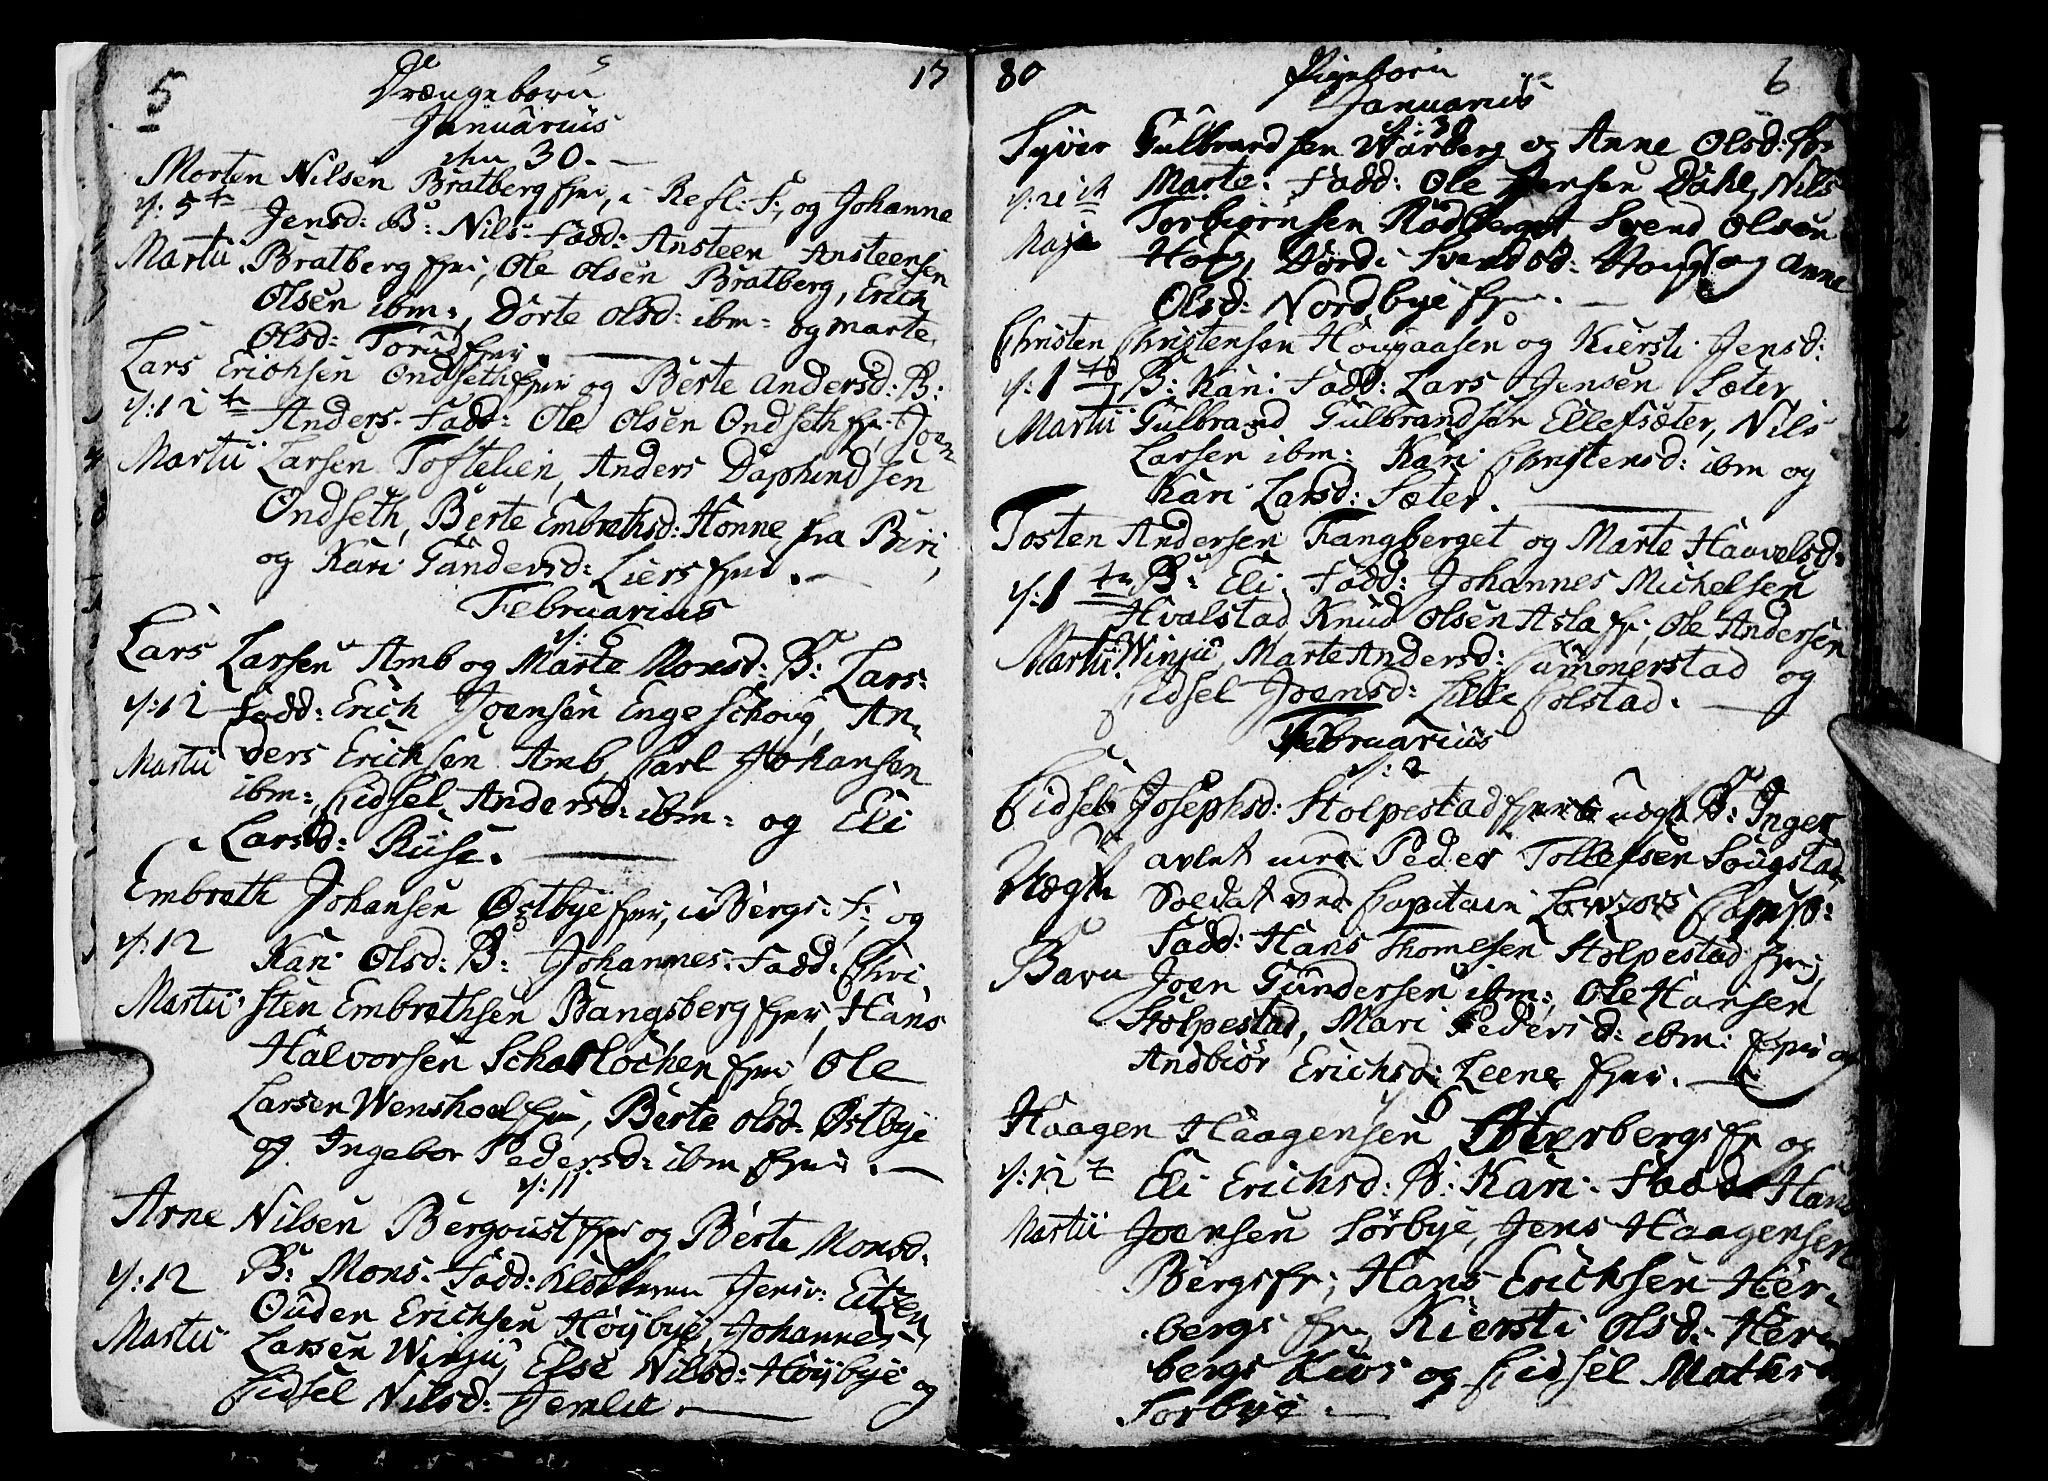 5
17
Drængebørn
Januarius
den 30.
Morten Nilsen Bratberg , i Refl: S:, og Johanne
d: 5te Jensd: B: Nils. Fadd: Ansteen Ansteensen
Martii Bratberg , Ole Olsen Bratberg, Erich
Olsen ibm:, Dorte Olsd: ibm: og Marte
Olsd: Torud .
Lars Erichsen Ondseth og Berte Andersd: B:
d: 12te Anders. Fadd: Ole Olsen Ondseth , Joen
Martii Larsen Toftelien, Anders Daphindsen
Ondseth, Berte Embrethsd: Honne fra Biri,
og Kari Gundersd: Liers .
Februarius
d: 6
Lars Larsen Amb og Marte Monsd: B: Lars.
d: 12 Fadd: Erich Joensen Engeschoug, An-
Martii ders Erichsen Amb, Carl Johansen
ibm:, Cidsel Andersd: ibm: og Eli
Larsd: Ruse.
Embreth Johansen Østbye , i Bergs: S:, og
d: 12 Kari Olsd: B: Johannes. Fadd: Chri-
Martii sten Embrethsen Bangsberg , Hans
Halvorsen Scharlochen , Ole
Larsen Wenshoel , Berte Olsd: Østbye
og Ingebor Pedersd: ibm .
d: 11
Arne Nilsen Bergoust og Berte Monsd.
d: 12 B: Mons. Fadd: Jens v: Eitzen,
Martii Ouden Erichsen Höÿbye, Johannes
Larsen Winju, Else Nilsd: Höÿbye og
Cidsel Nilsd: Jemlie.
80
6
Pigebørn
Januarius
d: 30
Syver Gulbrandsen Warberg og Anne Olsd:
Marte. Fadd: Ole Jensen Dahl, Nils
Maji Torbiörnsen Rödberget, Svend Olsen
Houg, Dordi Svendsd: Houg og Anne
Olsd: Nordbye .
Christen Christensen Hougaasen og Kiersti Jensd:
d: 1te B: Kari. Fadd: Lars Jensen Sæter
Martii Gulbrand Gulbrandsen Ellefsæter, Nils
Larsen ibm: Kari Christensd: ibm og
Kari Larsd: Sæter.
Tosten Andersen Fangberget og Marte Haavelsd:
d: 1te B: Eli. Fadd: Johannes Michelsen
Hvalstad Knud Olsen Asla , Ole Andersen
Martii Winju, Marte Andersd: Cammerstad og
Cidsel Joensd: Lille Colstad.
Februarius
d: 2
Cidsel Josephsd: Stolpestad uægt B: Inger
Uægte avlet med Peder Tollefsen Sougstad
Soldat ved Capitain Comp:
Barn Fadd: Hans Thomesen Stolpestad
Joen Gundersen ibm:, Ole Hansen
Stolpestad, Mari Pedersd: ibm: og
Andbiör Erichsd: Leene .
6
Haagen Haagensen Herbergs og
d: 12t Eli Erichsd: B: Kari. Fadd: Hans
Martii Joensen Sörbye, Jens Haagensen
Bergs , Hans Erichsen Her-
bergs , Kiersti Olsd: Her-
bergs og Cidsel Mathisd
Sorbye.